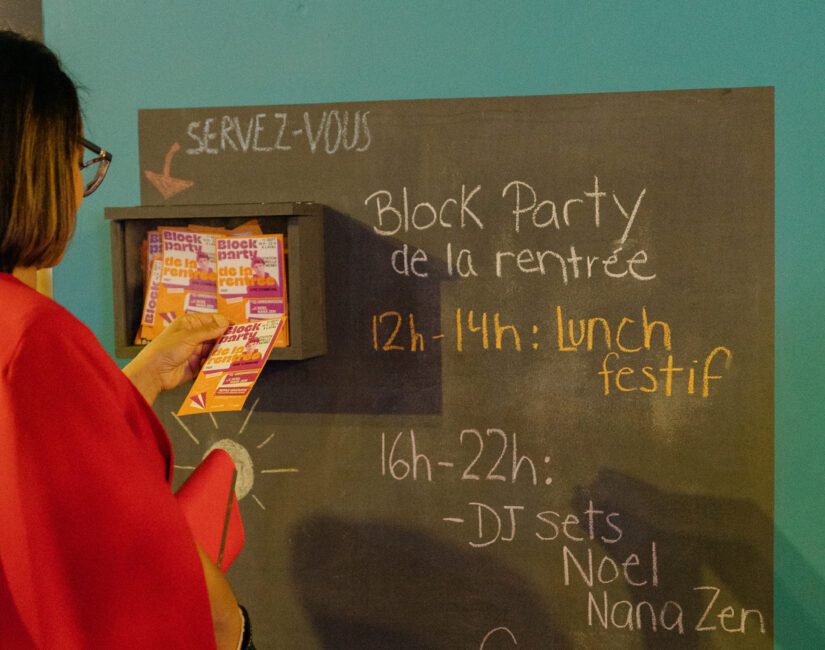 SERVEZ-VOUS
Block Party
de la rentrée
12h-14h : Lunch
festif
16h-22h:
- DJ sets
Noel
Nana Zen
Block
party
de la
rentrée
Block
party
de la
rentrée
Block
party
de la
rentrée